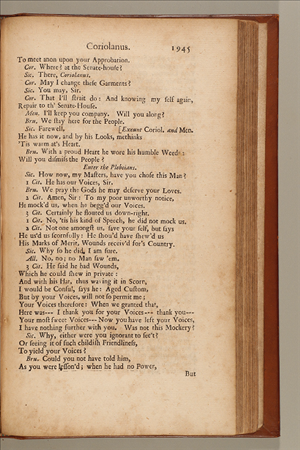 Coriolanus. 1945
To meet anon upon your Approbation.
Cor. Where? at the Senate-house?
Sic. There, Coriolanus.
Cor. May I change these Garments?
Sic. You may, Sir.
Cor. That I'll strait do: And knowing my self again,
Repair to th' Senate-House.
Men. I'll keep you company. Will you along?
Bru. We stay here for the People.
Sic. Farewell. [Exeunt Coriol. and Men.
He has it now, and by his Looks, methinks
'Tis warm at's Heart.
Bru. With a proud Heart he wore his humble Weeds:
Will you dismiss the People?
Enter the Plebeians.
Sic. How now, my Masters, have you chose this Man?
1 Cit. He has our Voices, Sir.
Bru. We pray the Gods he may deserve your Loves.
2 Cit. Amen, Sir: To my poor unworthy notice,
He mock'd us, when he begg'd our Voices.
3 Cit. Certainly he flouted us down-right.
1 Cit. No, 'tis his kind of Speech, he did not mock us.
2 Cit. Not one amongst us, save your self, but says
He us'd us scornfully: He should have shew'd us
His Marks of Merit, Wounds receiv'd for's Country.
Sic. Why so he did, I am sure.
All. No, no; no Man saw 'em.
3 Cit. He said he had Wounds,
Which he could shew in private:
And with his Hat, thus waving it in Scorn,
I would be Consul, says he: Aged Custom,
But by your Voices, will not so permit me;
Your Voices therefore: When we granted that,
Here was--- I thank you for your Voices--- thank you---
Your most sweet Voices--- Now you have left your Voices,
I have nothing further with you. Was not this Mockery?
Sic. Why, either were you ignorant to see't?
Or seeing it of such childish Friendliness,
To yield your Voices?
Bru. Could you not have told him,
As you were lesson'd; when he had no Power,
But